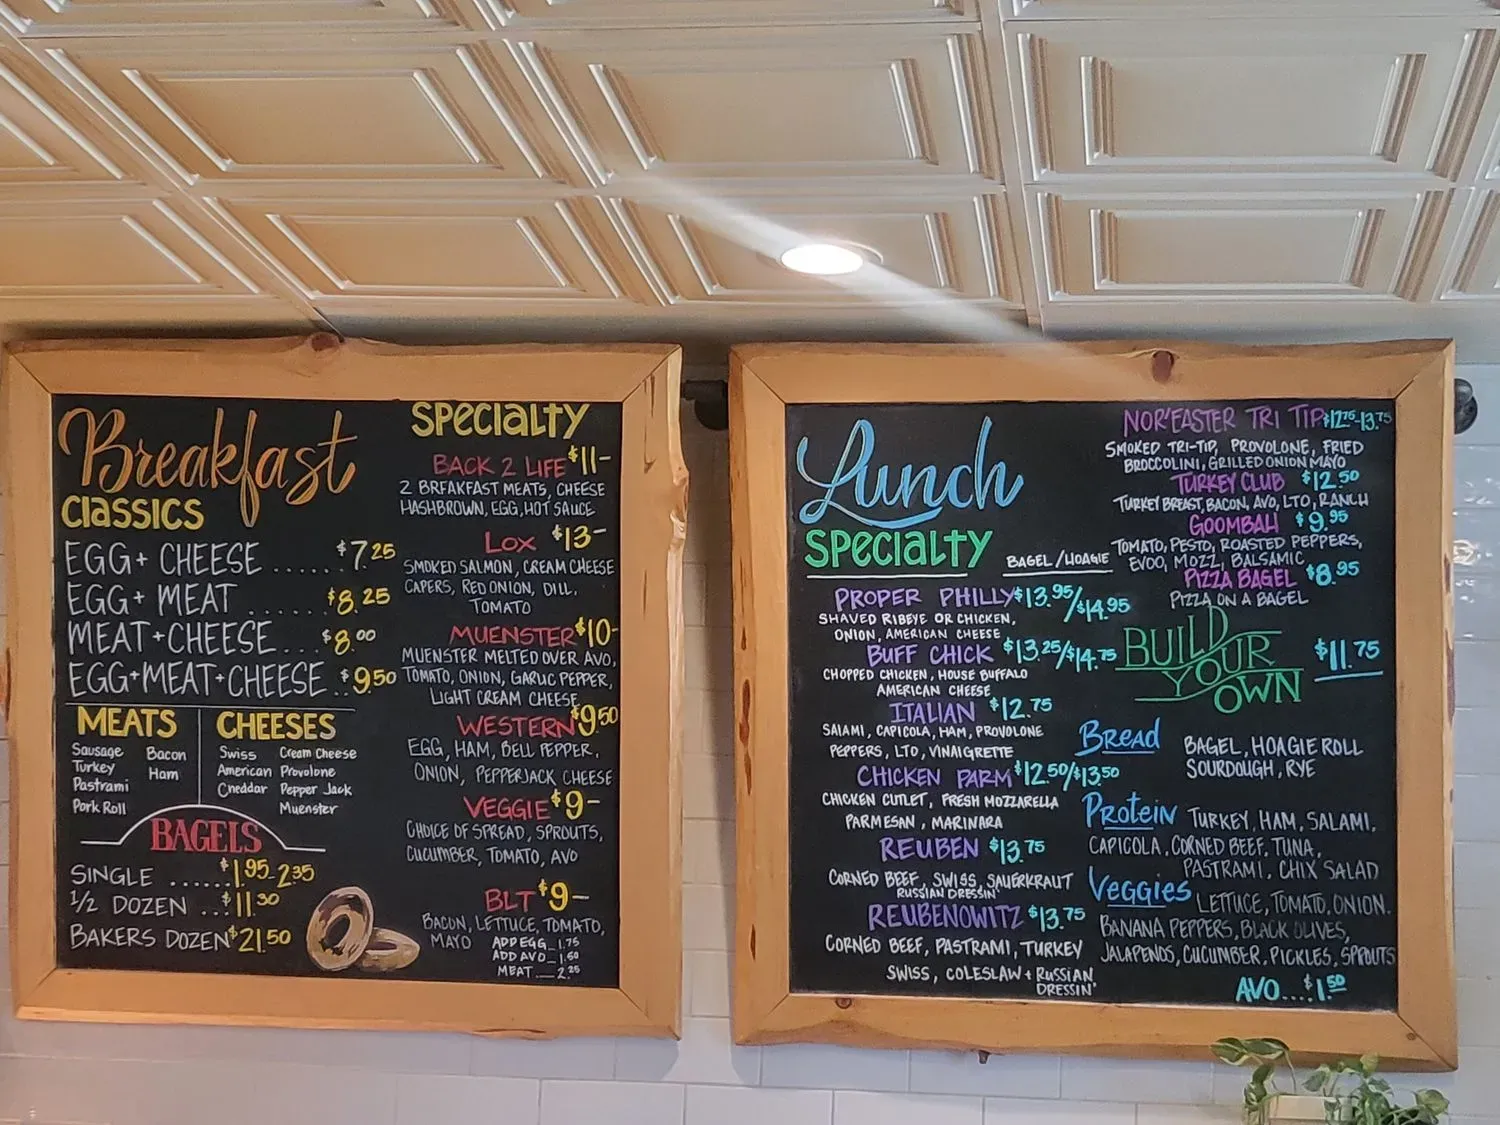 Breakfast
Classics
EGG + CHEESE ...... $7.25
EGG + MEAT ...... $8.25
MEAT + CHEESE ... $8.00
EGG + MEAT + CHEESE .. $9.50
MEATS
Sausage
Turkey
Pastrami
Pork Roll
Bacon
Ham
CHEESES
Swiss
American
Cheddar
Cream Cheese
Provolone
Pepper Jack
Muenster
BAGELS
SINGLE ...... $1.95-2.35
1/2 DOZEN ... $11.30
BAKERS DOZEN $21.50
Specialty
BACK 2 LIFE $11-
2 BREAKFAST MEATS, CHEESE
HASHBROWN, EGG, HOT SAUCE
LOX $13-
SMOKED SALMON, CREAM CHEESE
CAPERS, RED ONION, DILL,
TOMATO
MUENSTER $10-
MUENSTER MELTED OVER AVO,
TOMATO, ONION, GARLIC PEPPER,
LIGHT CREAM CHEESE
WESTERN $9.50
EGG, HAM, BELL PEPPER,
ONION, PEPPERJACK CHEESE
VEGGIE $9-
CHOICE OF SPREAD, SPROUTS,
CUCUMBER, TOMATO, AVO
BLT $9-
BACON, LETTUCE, TOMATO,
MAYO
ADD EGG_1.75
ADD AVO_1.50
MEAT___2.25
Lunch
Specialty
BAGEL/HOAGIE
PROPER PHILLY $13.95/$14.95
SHAVED RIBEYE OR CHICKEN,
ONION, AMERICAN CHEESE
BUFF CHICK $13.25/$14.75
CHOPPED CHICKEN, HOUSE BUFFALO
AMERICAN CHEESE
ITALIAN $12.75
SALAMI, CAPICOLA, HAM, PROVOLONE
PEPPERS, LTO, VINAIGRETTE
CHICKEN PARM $12.50/$13.50
CHICKEN CUTLET, FRESH MOZZARELLA
PARMESAN, MARINARA
REUBEN $13.75
CORNED BEEF, SWISS, SAUERKRAUT
RUSSIAN DRESSIN'
REUBENOWITZ $13.75
CORNED BEEF, PASTRAMI, TURKEY
SWISS, COLESLAW + RUSSIAN
DRESSIN'
NOR'EASTER TRI TIP $12.75-13.75
SMOKED TRI-TIP, PROVOLONE, FRIED
BROCCOLINI, GRILLED ONION MAYO
TURKEY CLUB $12.50
TURKEY BREAST, BACON, AVO, LTO, RANCH
GOOMBAH $9.95
TOMATO, PESTO, ROASTED PEPPERS,
EVOO, MOZZ, BALSAMIC
PIZZA BAGEL $8.95
PIZZA ON A BAGEL
BUILD
YOUR
OWN
$11.75
Bread
BAGEL, HOAGIE ROLL
SOURDOUGH, RYE
Protein TURKEY, HAM, SALAMI,
CAPICOLA, CORNED BEEF, TUNA,
PASTRAMI, CHIX SALAD
Veggies LETTUCE, TOMATO, ONION,
BANANA PEPPERS, BLACK OLIVES,
JALAPENOS, CUCUMBER, PICKLES, SPROUTS
AVO....$1.50